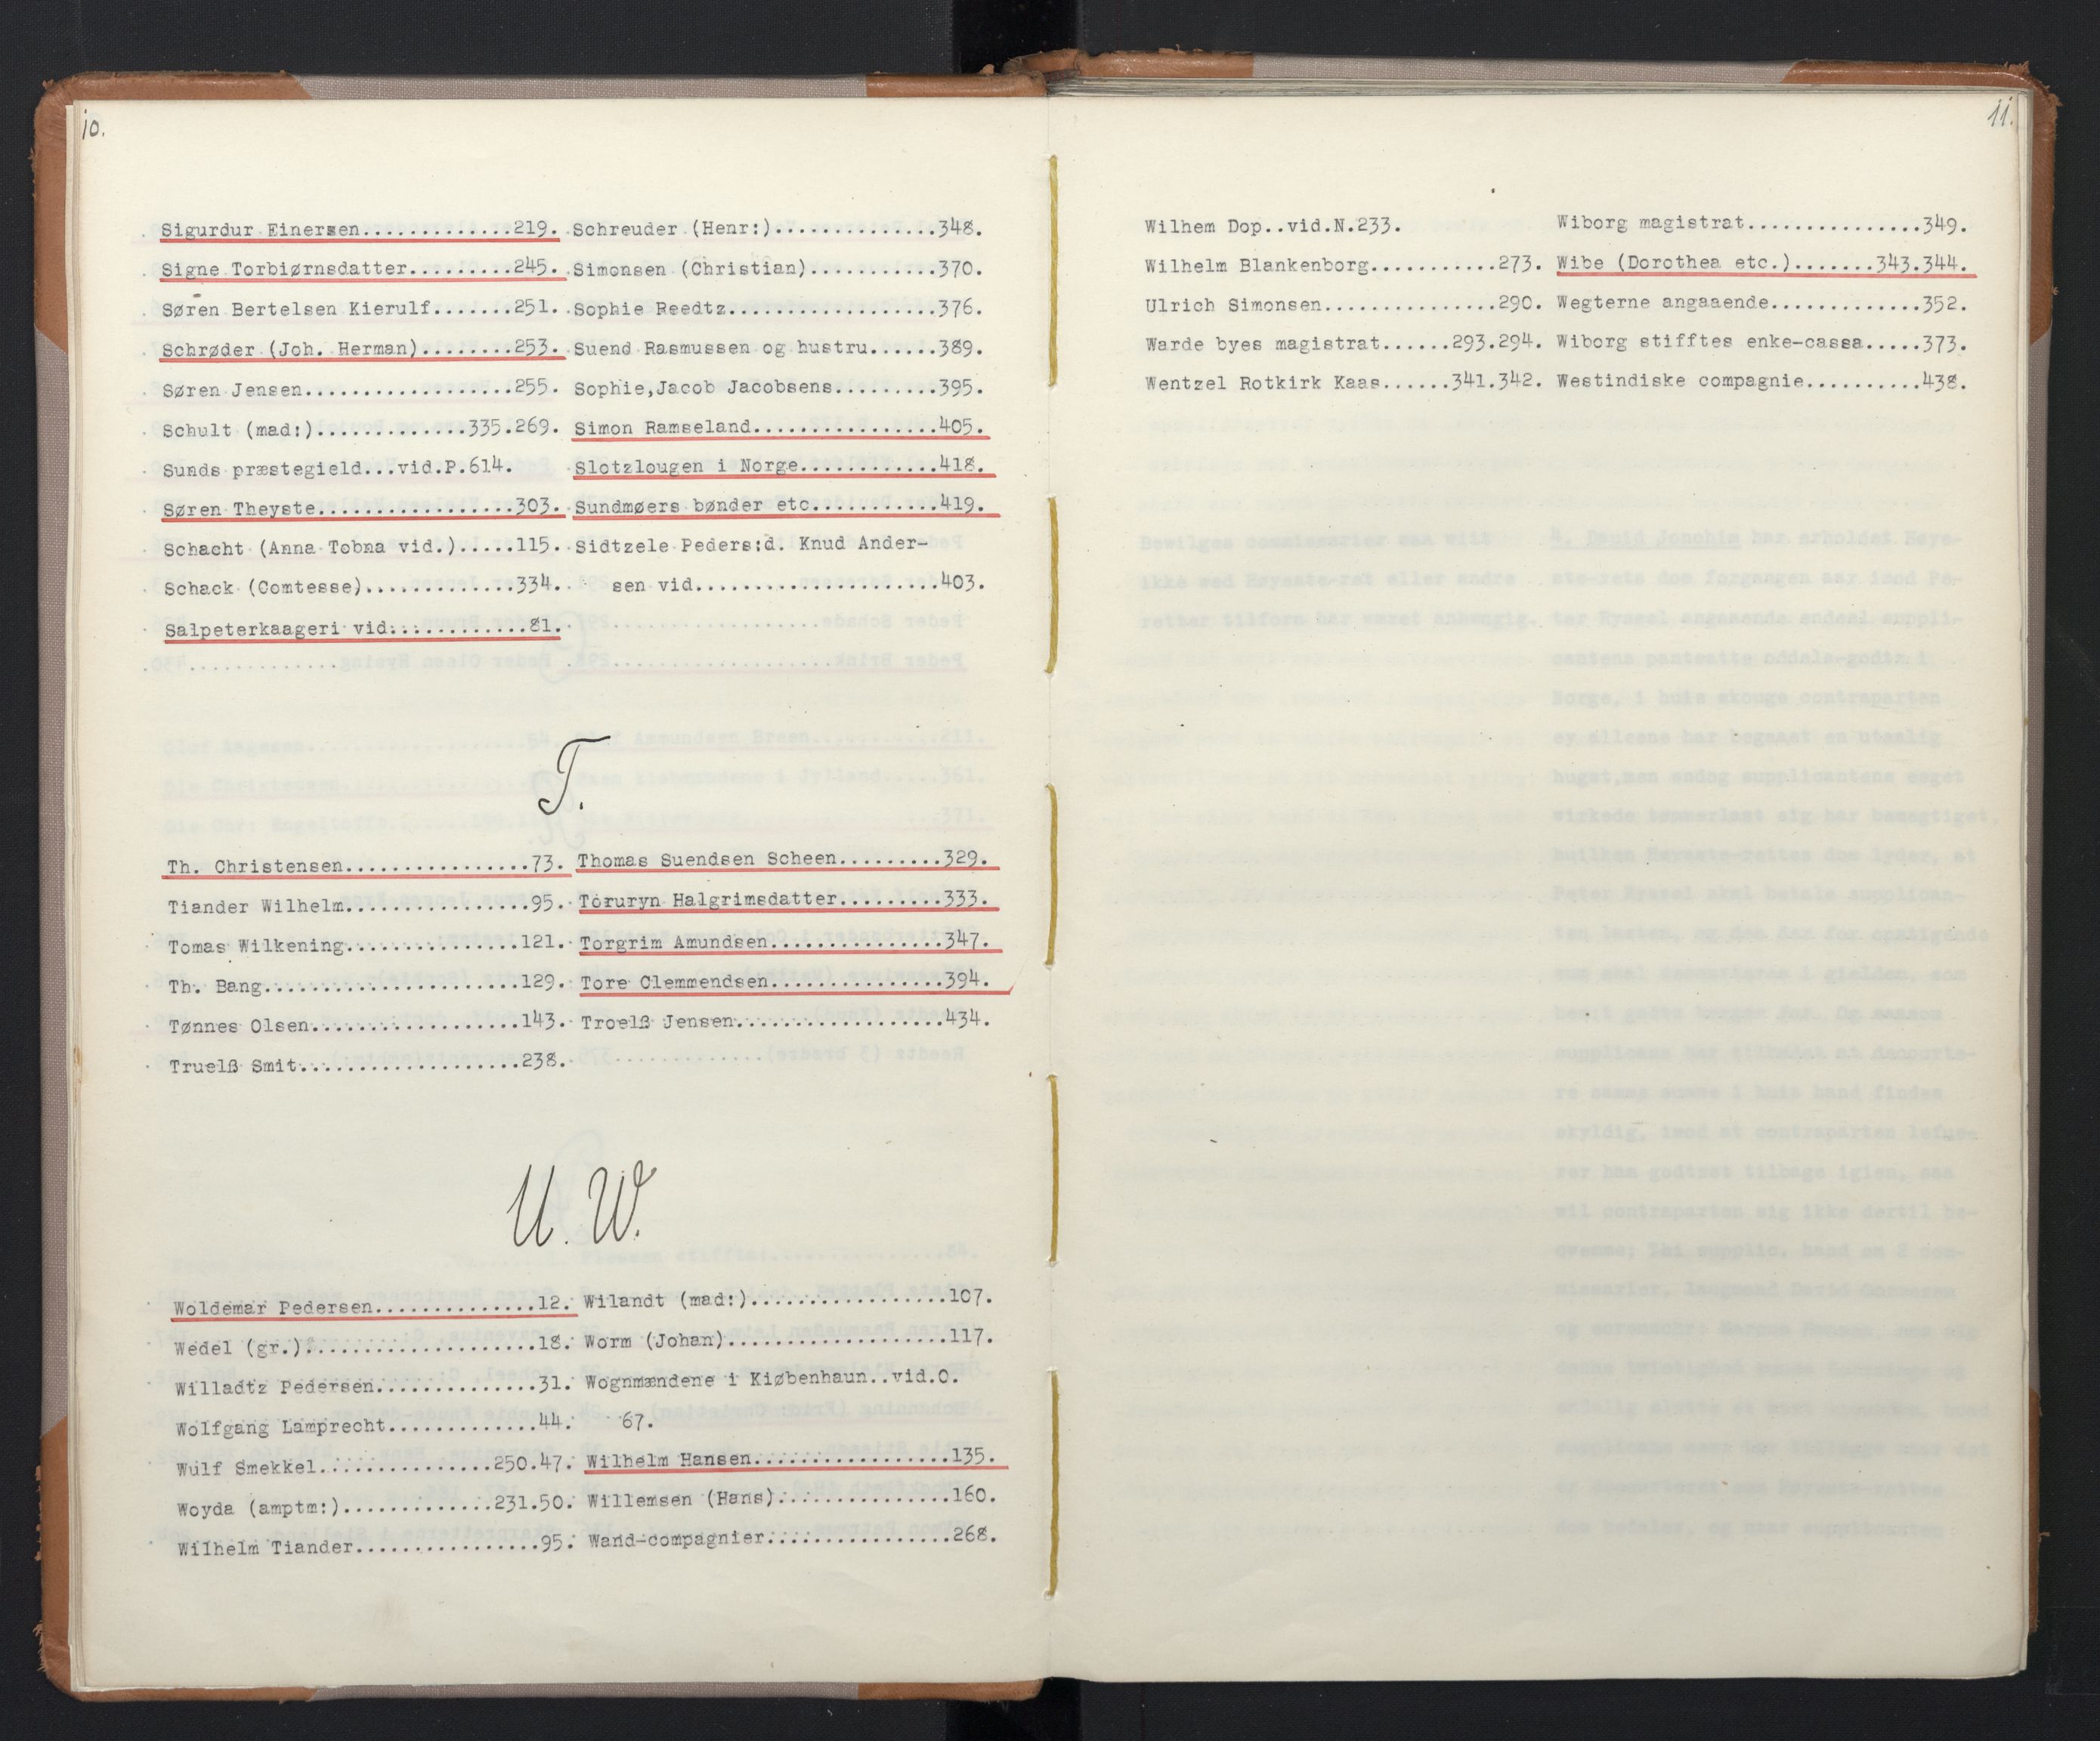 10.
Sigurdur Einersen..............219.
Signe Torbiørnsdatter.........245.
Søren Bertelsen Kierulf.......251.
Schrøder (Joh. Herman)........253.
Søren Jensen...................255.
Schult (mad:)..............335.269.
Sunds præstegield...vid.P.614.
Søren Theyste.................303.
Schacht (Anna Tobna vid.).....115.
Schack (Comtesse)..............334.
Salpeterkaageri vid:............81.
Schreuder (Henr:)..............348.
Simonsen (Christian)...........370.
Sophie Reedtz..................376.
Suend Rasmussen og hustru......389.
Sophie,Jacob Jacobsens.........395.
Simon Ramseland................405.
Slotzlougen i Norge............418.
Sundmøers bønder etc...........419.
Sidtzele Peders:d. Knud Ander-
sen vid.....................403.
T.
Th. Christensen................73.
Tiander Wilhelm................95.
Tomas Wilkening...............121.
Th. Bang......................129.
Tønnes Olsen..................143.
Truelß Smit...................238.
Thomas Suendsen Scheen.........329.
Toruryn Halgrimsdatter.........333.
Torgrim Amundsen...............347.
Tore Clemmendsen...............394.
Troelß Jensen..................434.
U. W.
Woldemar Pedersen..............12.
Wedel (gr.)....................18.
Willadtz Pedersen..............31.
Wolfgang Lamprecht.............44.
Wulf Smekkel...............250.47.
Woyda (amptm:).............231.50.
Wilhelm Tiander................95.
Wilandt (mad:).................107.
Worm (Johan)...................117.
Wognmændene i Kiøbenhaun..vid.O.
67.
Wilhelm Hansen.................135.
Willemsen (Hans)...............160.
Wand-compagnier................268.
11.
Wilhem Dop..vid.N.233.
Wilhelm Blankenborg...........273.
Ulrich Simonsen...............290.
Warde byes magistrat......293.294.
Wentzel Rotkirk Kaas......341.342.
Wiborg magistrat...............349.
Wibe (Dorothea etc.).......343.344.
Wegterne angaaende.............352.
Wiborg stifftes enke-cassa.....373.
Westindiske compagnie..........438.